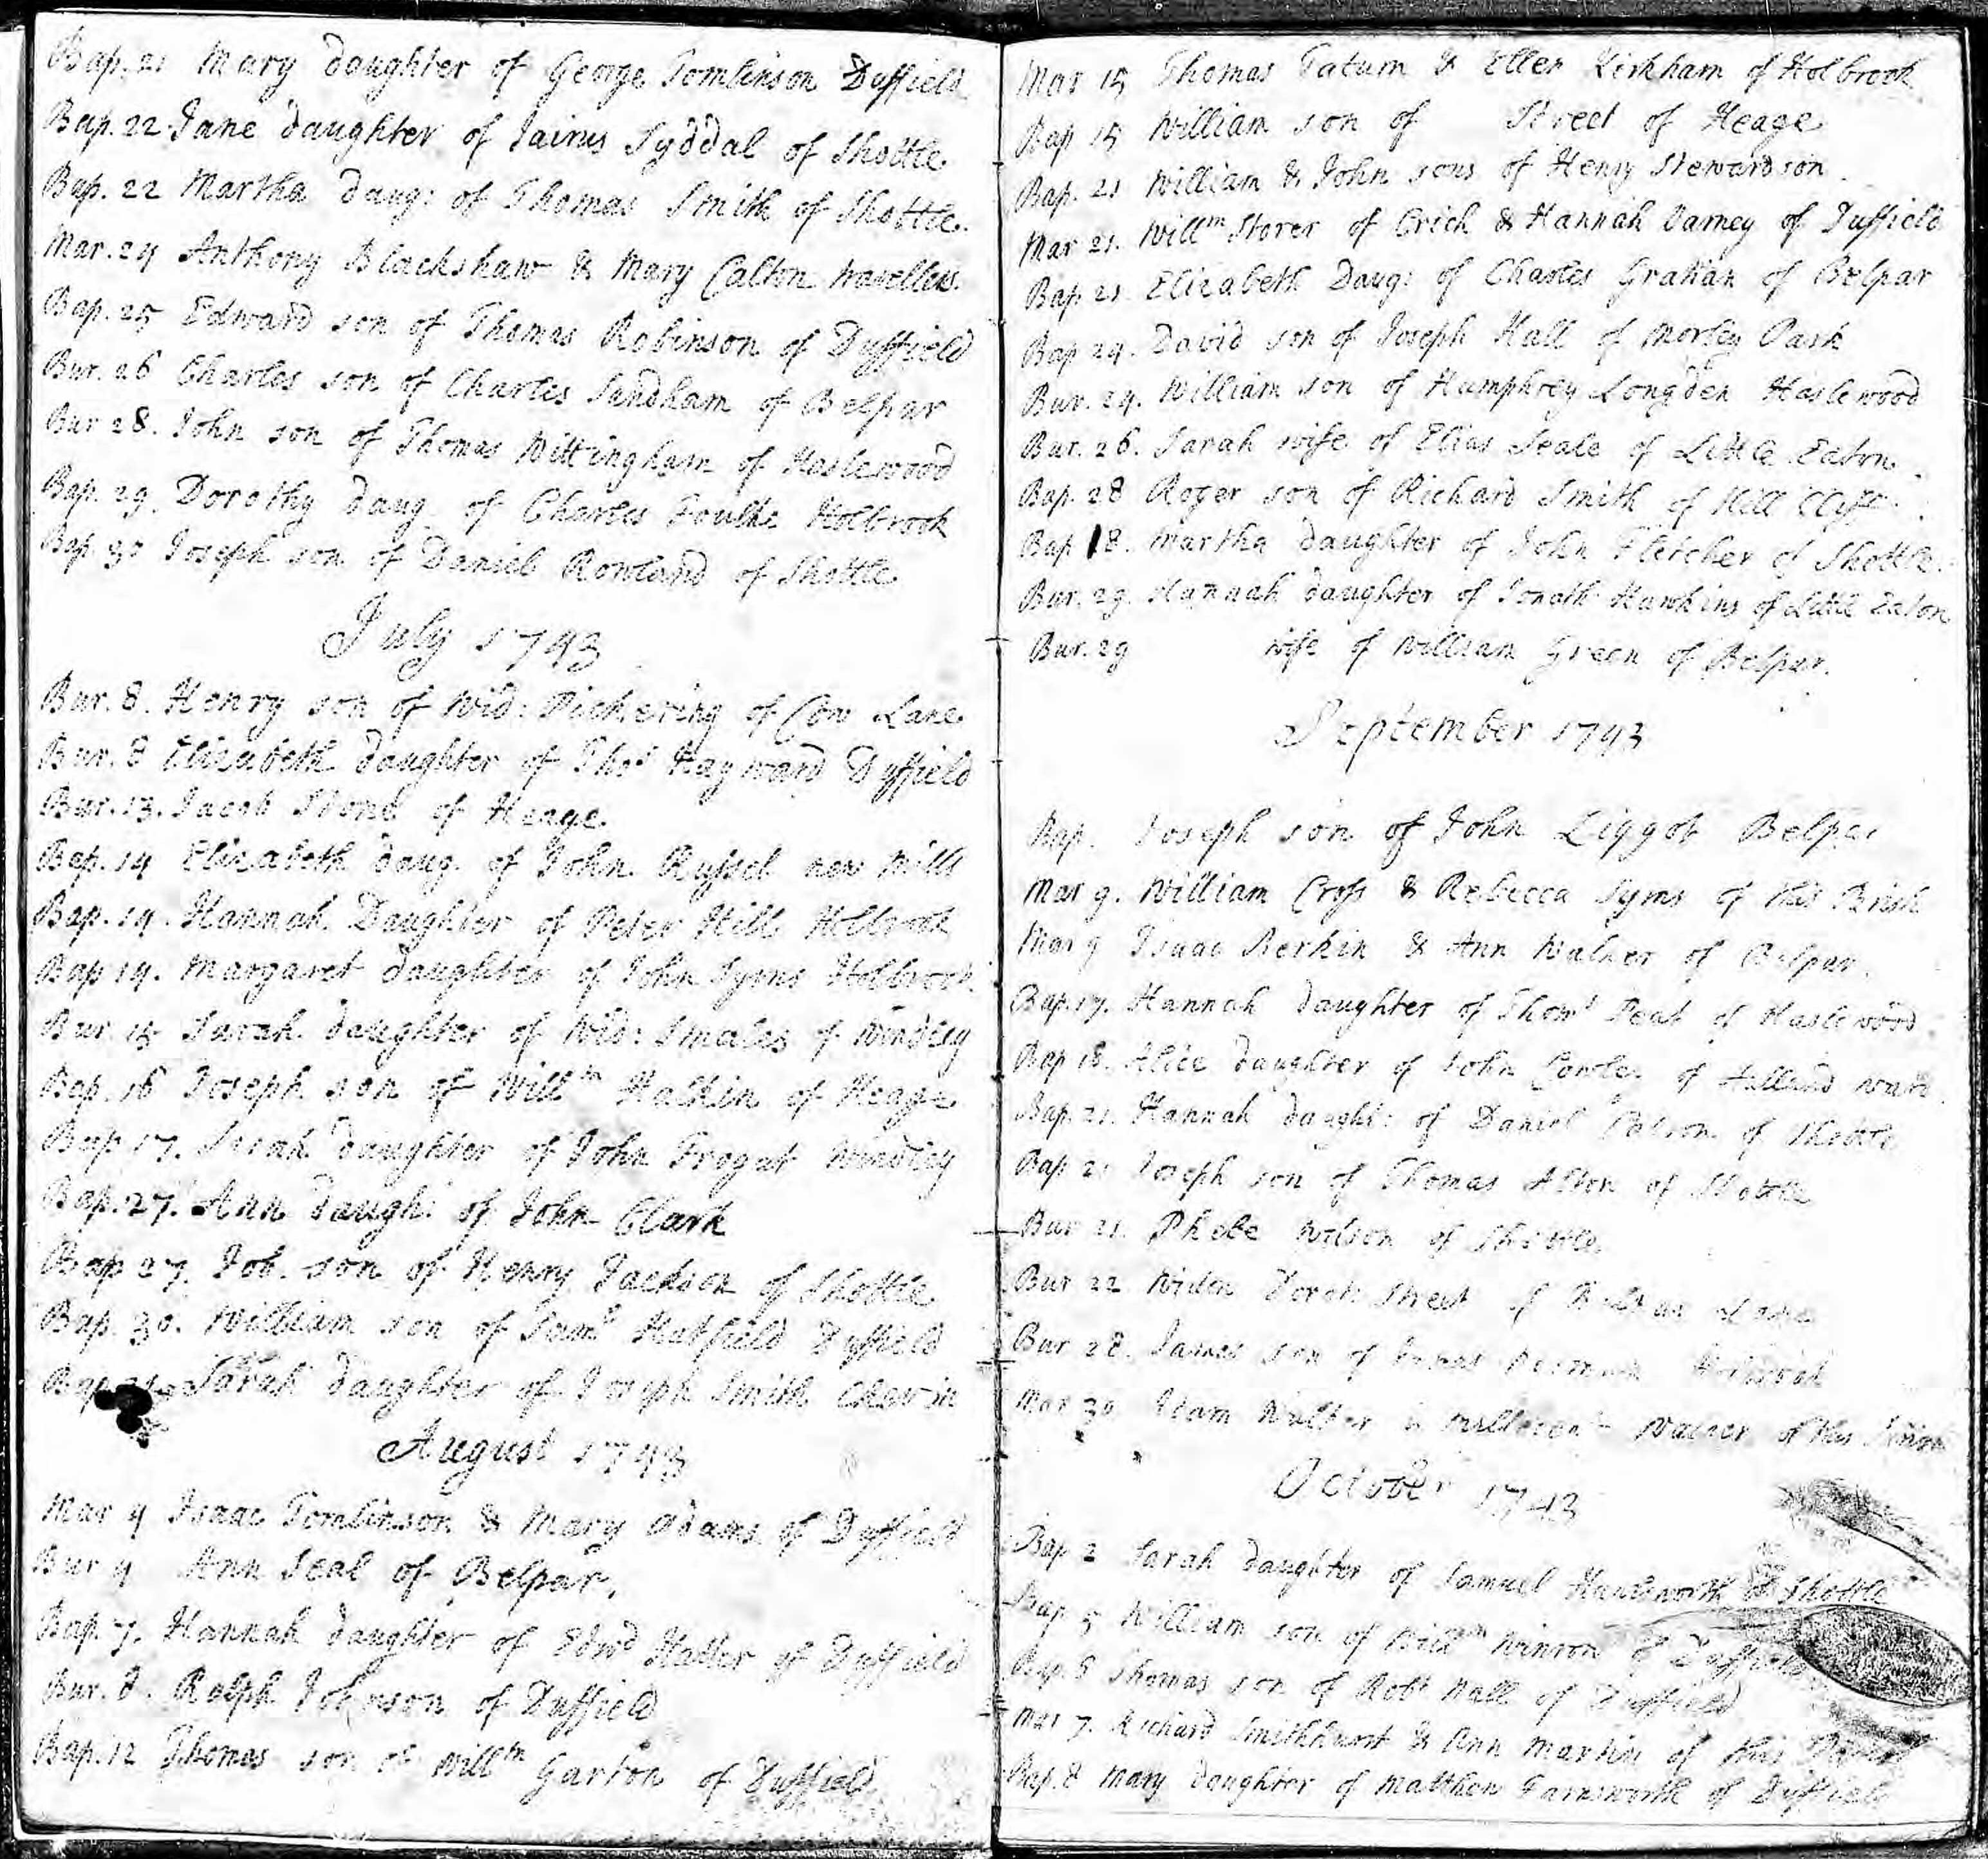 Bap. 21 Mary daughter of George Tomlinson Duffield
Bap. 22 Jane daughter of Jairus Syddal of Shottle
Bap. 22 Martha daug: of Thomas Smith of Shottle.
Mar. 24 Anthony Blackshaw & Mary Calton
Bap. 25 Edward son of Thomas Robinson of Duffield
Bur. 26 Charles son of Charles Sandham of Belpar
Bur 28. John son of Thomas Wittingham of Haslewood
Bap. 29. Dorothy daug. of Charles Foulke Holbrook
Bap. 30 Joseph son of Daniel Rowland of Shottle
July 1743
Bur. 8. Henry son of Wid: Pickering of Cow Lane
Bur. 8 Elizabeth daughter of Thos Hayward Duffield
Bur. 13. Jacob Stone of Heage.
Bap. 14 Elizabeth daug. of John Russel new Mills
Bap. 14. Hannah Daughter of Peter Hill Holbrook
Bap 14. Margaret daughter of John Syms Holbrook
Bur. 15 Sarah daughter of Wid: Smales of Windley
Bap. 16 Joseph son of Willm Halkin of Heage
Bap 17. Sarah daughter of John Frogat Windley
Bap. 27. Ann daugh: of John Clark
Bap 27. Job. son of Henry Jackson of Shottle
Bap. 30. William son of Saml Hatfield Duffield
Bap. Sarah daughter of Joseph Smith Chevin
August 1743
Mar 4 Isaac Tomlinson & Mary Adams of Duffield
Bur 4 Ann Seal of Belpar.
Bap. 7. Hannah daughter of Edwd Hatter of Duffield
Bur. 8. Ralph Johnson of Duffield
Bap. 12 Thomas son of Willm Garton of Duffield
Mar 15 Thomas Tatum & Ellen Kirkham of Holbrook
Bap 15 William son of Street of Heage
Bap. 21 William & John sons of Henry Stewardson
Mar 21. Willm Storer of Crich & Hannah Varney of Duffield
Bap. 21 Elizabeth Daug: of Charles Graham of Belpar
Bap 24. David son of Joseph Hall of Morley Park
Bur. 24. William son of Humphrey Longden Haslewood
Bur. 26. Sarah wife of Elias Seale of Little Eaton
Bap. 28 Roger son of Richard Smith of Hill Clift
Bap 18. Martha daughter of John Fletcher of Shottle.
Bur. 29. Hannah daughter of Jonath Hawkins of Little Eaton
Bur. 29 wife of William Green of Belpar.
September 1743
Bap. Joseph son of John Liggot Belpar
Mar 9. William Cross & Rebecca Syms of this Parish
Mar 9 Isaac Berkin & Ann Walker of Belpar.
Bap. 17. Hannah daughter of Thoms Peat of Haslewood
Bap 18. Alice daughter of John of
Bap. 21. Hannah daught: of Daniel of Shottle
Bap 21 Joseph son of Thomas Alton of Shottle
Bur 21. Phebe Wilson of Shottle
Bur 22 Widow Street of Lane
Bur 28. James son of
Mar 30 Adam & of this
October 1743
Bap 2 Sarah daughter of Samuel of Shottle
Bap 5 William son of Willm Winson of Duffield
Bap. 5 Thomas son of Robt Wall of Duffield
Mar 7. Richard Smithhurst & Ann Martin of this Parish
Bap. 8 Mary daughter of Matthew Farnsworth of Duffield